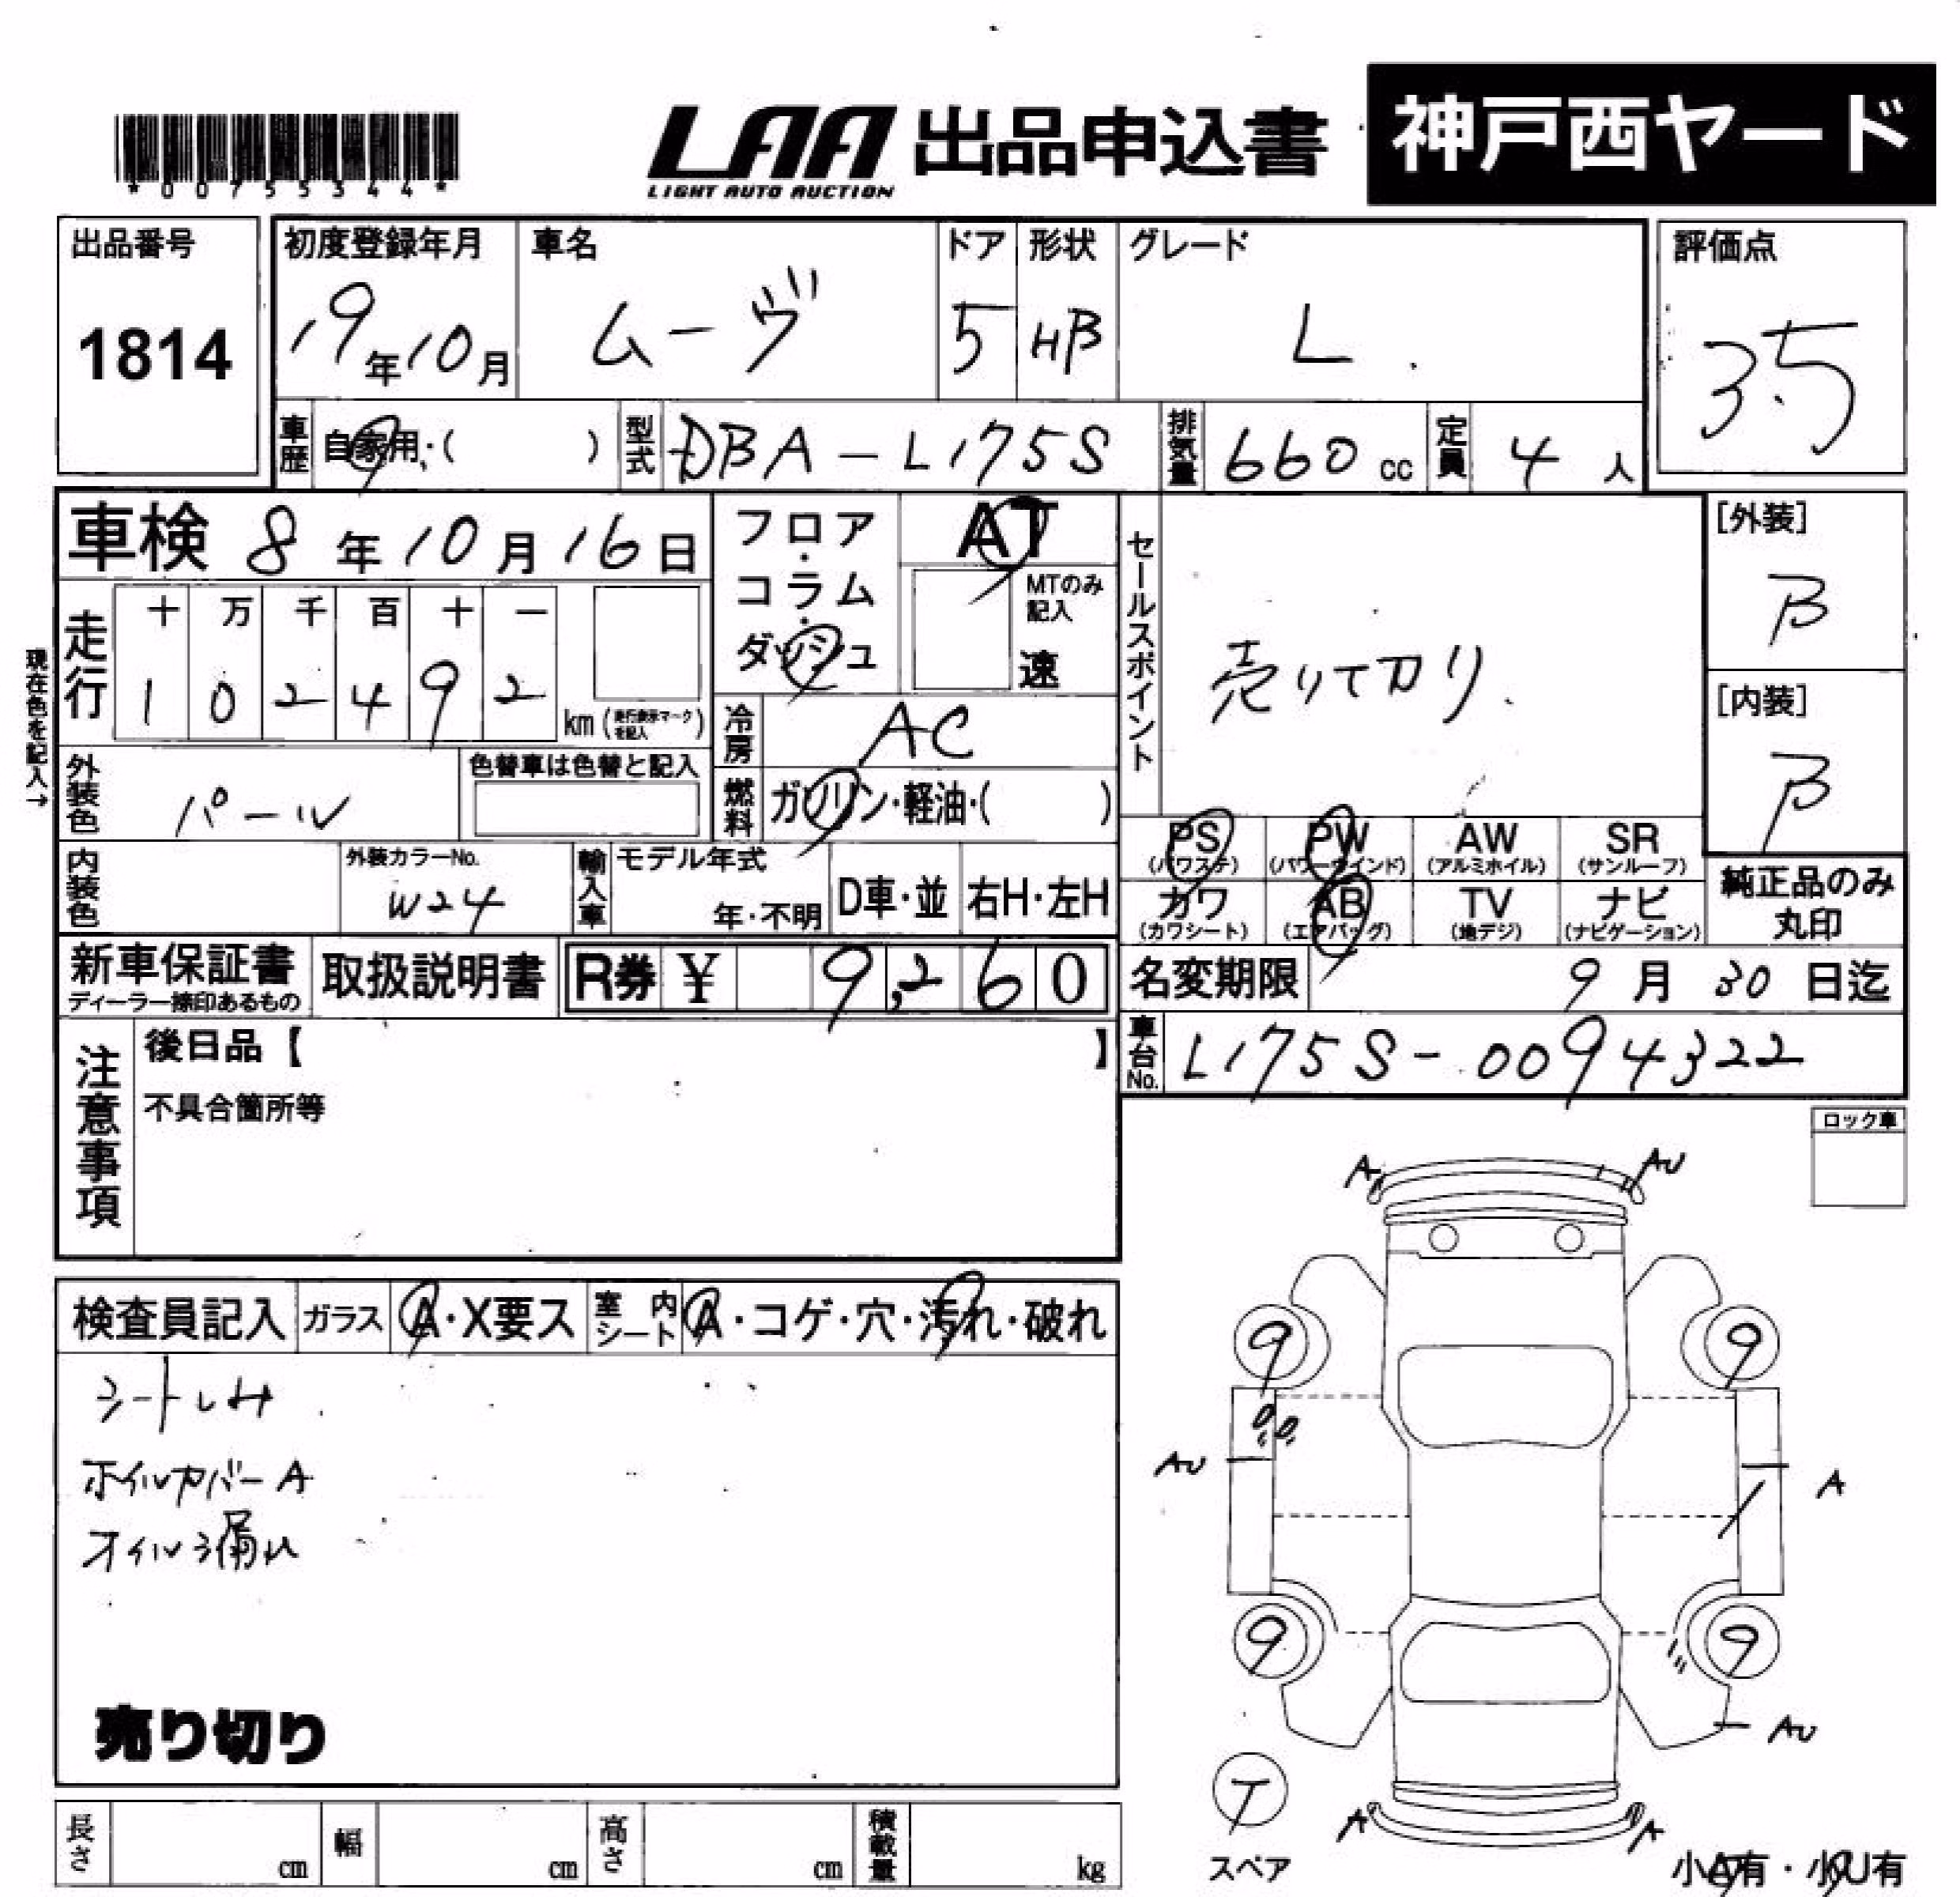 *00755344*
LAA 出品申込書 神戸西ヤード
LIGHT AUTO AUCTION
出品番号 1814
初度登録年月 19年10月
車名 ムーヴ
ドア 5
形状 HB
グレード L
評価点 3.5
車歴 自家用・( )
型式 DBA-L175S
排気量 660 cc
定員 4 人
車検 8年10月16日
現在色を記入→
走行 十 万 千 百 十 一
1 0 2 4 9 2 km (走行表示マークを記入)
フロア・コラム・ダッシュ
AT
MTのみ記入
速
冷房 AC
燃料 ガソリン・軽油・( )
外装色 パール
色替車は色替と記入
内装色
外装カラーNo. W24
輸入車 モデル年式 年・不明
D車・並 右H・左H
セールスポイント 売りて切り
[外装] B
[内装] B
PS (パワステ) PW (パワーウインド) AW (アルミホイル) SR (サンルーフ)
カワ (カワシート) AB (エアバッグ) TV (地デジ) ナビ (ナビゲーション)
純正品のみ丸印
新車保証書 ディーラー捺印あるもの
取扱説明書
R券 ¥ 9,260
名変期限 9月30日迄
車台No. L175S-0094322
注意事項
後日品【 】
不具合箇所等
ロック車
検査員記入 ガラス A・X要ス 室内シート A・コゲ・穴・汚れ・破れ
シートしみ
ホイルカバーA
オイル漏れ
売り切り
A AU
9 9
AU A
9 9
AU
T
スペア
A A
小A有・小U有
長さ cm 幅 cm 高さ cm 積載量 kg